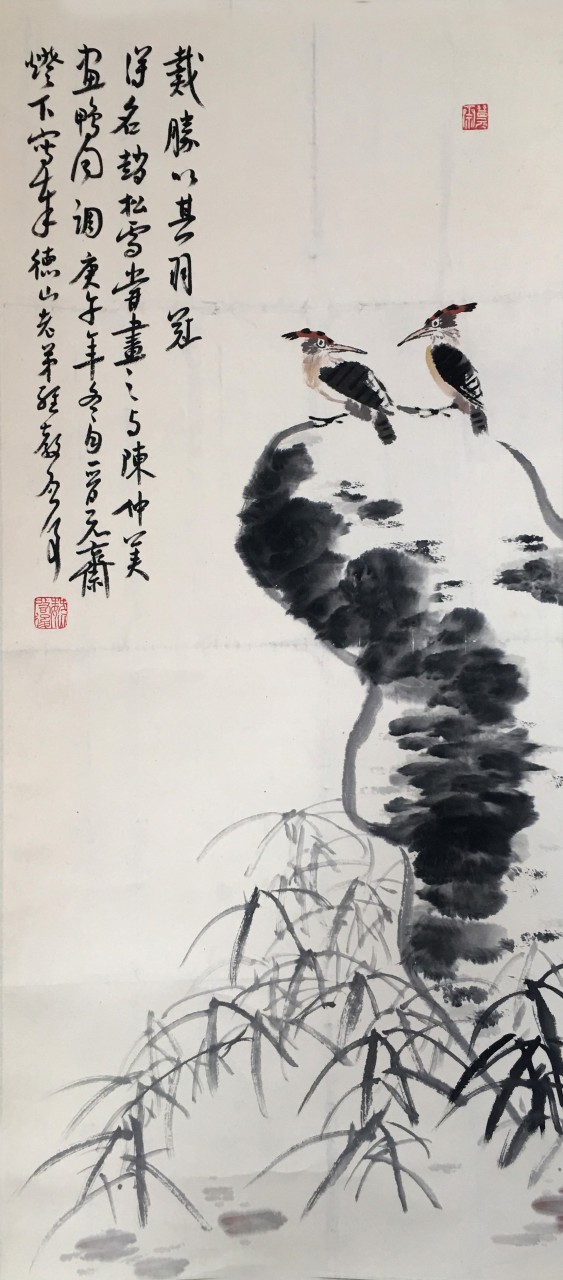 戴勝以其羽冠
得名趙松雪嘗畫之与陳仲美
画鴨同調庚午年冬自晉元齋
燈下寫奉德山老弟